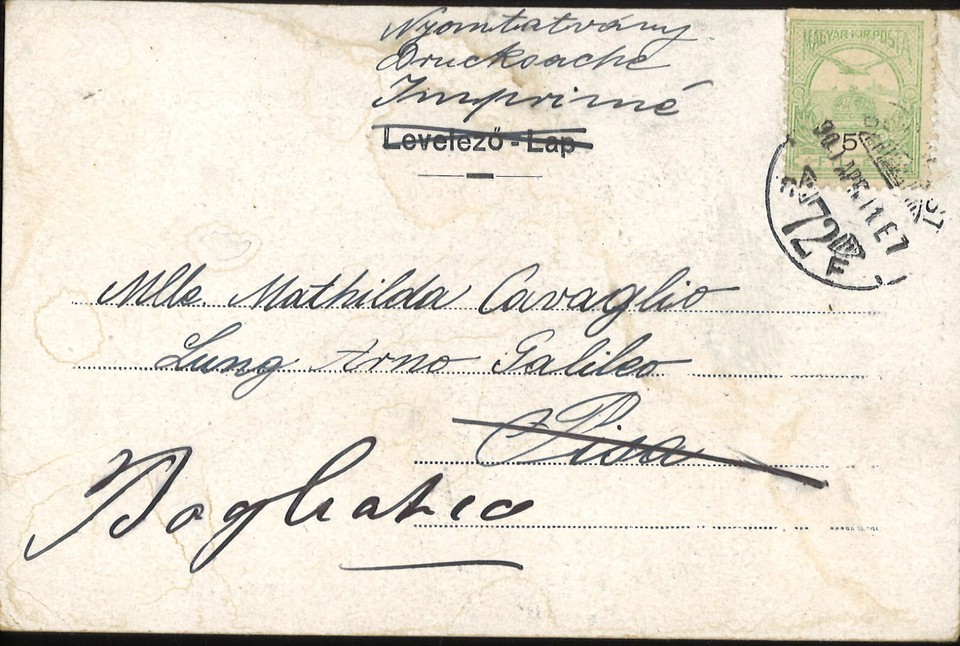 Nyomtatvány
Drucksache
Imprimé
Levelező-Lap
MAGYAR KIR. POSTA
5
901 APR. 11. E7
72
Mlle. Mathilda Cavaglio
Lung Arno Galileo
Pisa